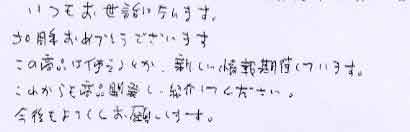 いつもお世話になります。
30周年おめでとうございます
この商品は使うとか、新しい情報期待しています。
これからも商品開発し、紹介してください。
今後もよろしくお願いします。